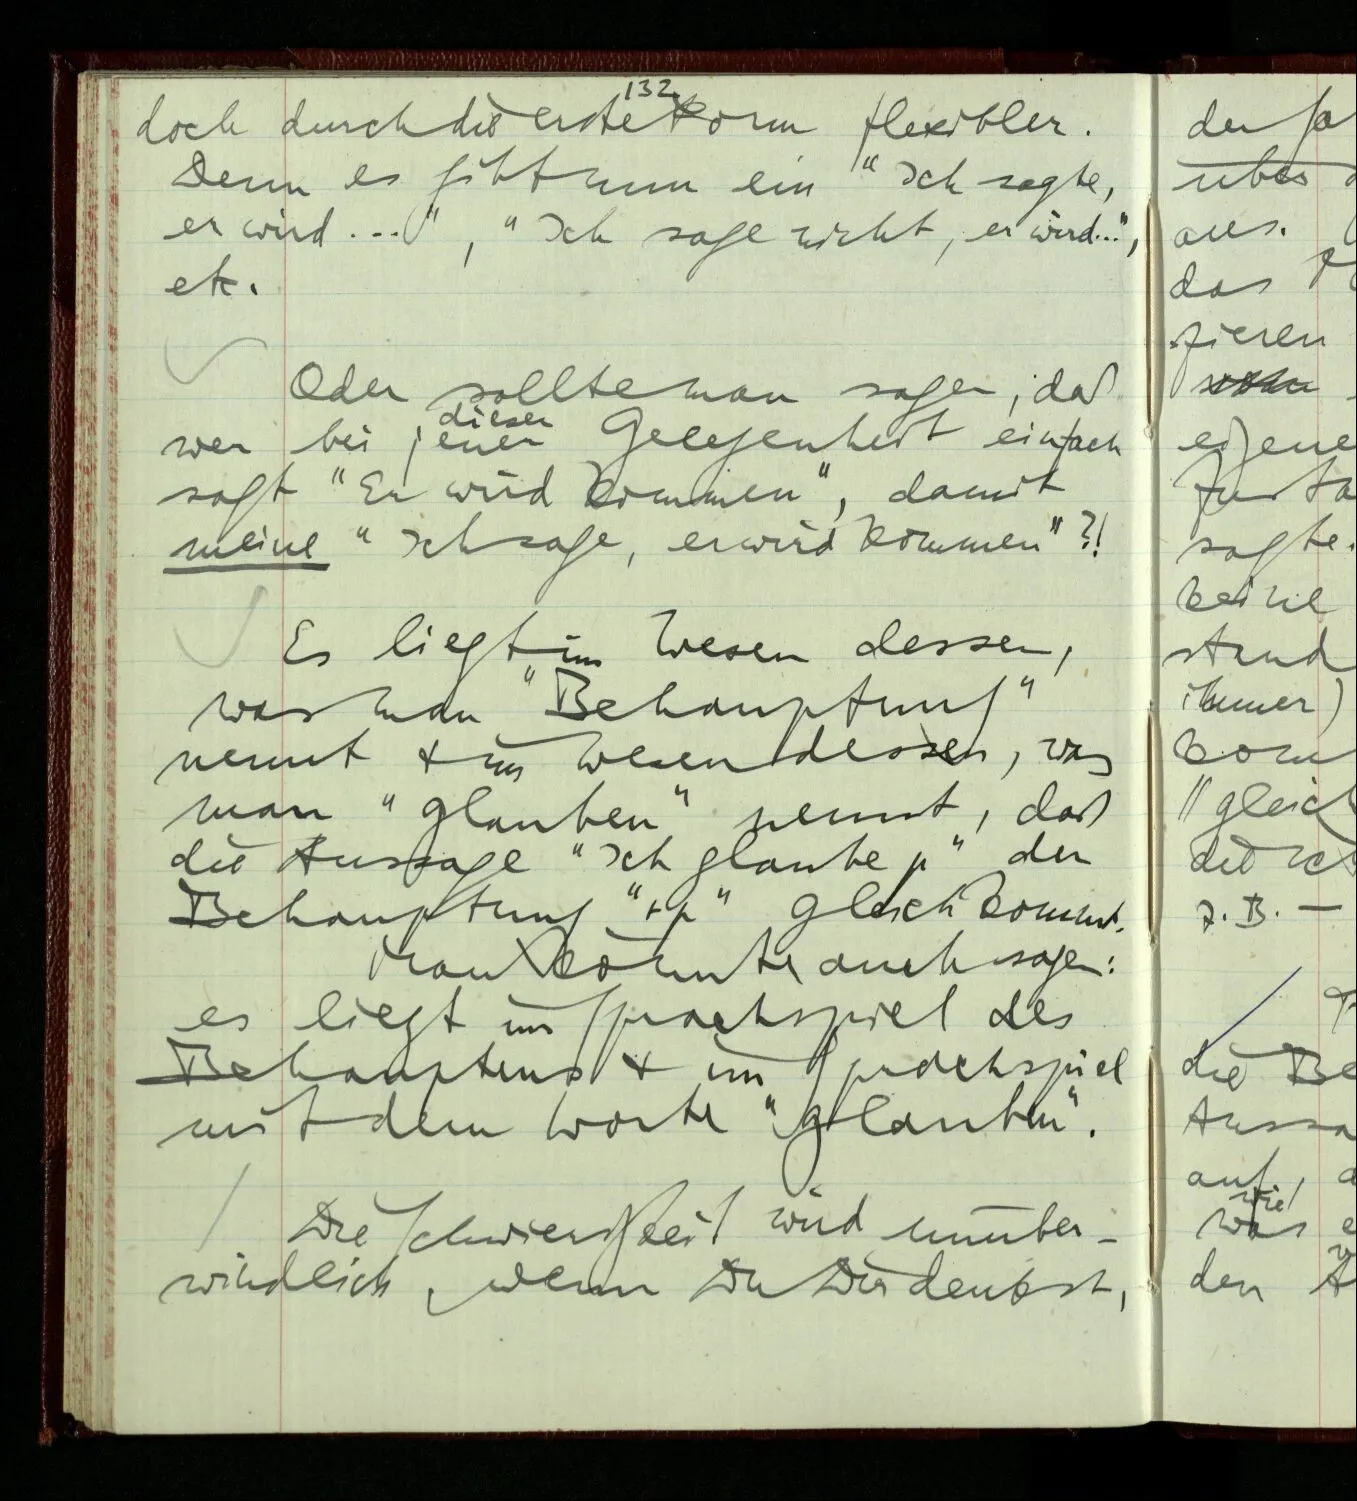 132
doch durch die erste Form flexibler.
Denn es gibt nun ein "Ich sagte,
er wird ...", "Ich sage nicht, er wird...",
etc.
Oder sollte man sagen, daß
dieser
wer bei jener Gelegenheit einfach
sagt "Er wird kommen", damit
meine "Ich sage, er wird kommen"?!
Es liegt im Wesen dessen,
was man "Behauptung"
nennt & im Wesen dessen, was
man "glauben" nennt, daß
die Aussage "Ich glaube p" der
Behauptung "⊢p" gleichkommt.
Man könnte auch sagen:
es liegt im Sprachspiel des
Behauptens & im Sprachspiel
mit dem Worte "glauben".
Die Schwierigkeit wird unüber-
windlich, wenn Du Dir denkst,
der
über
aus.
das
zieren
eigene
zusta
sagte.
keine
stand
immer)
kom
"gleich
die Ich
z.B. –
die Be
Aussa
auf, d
wie
was e
den